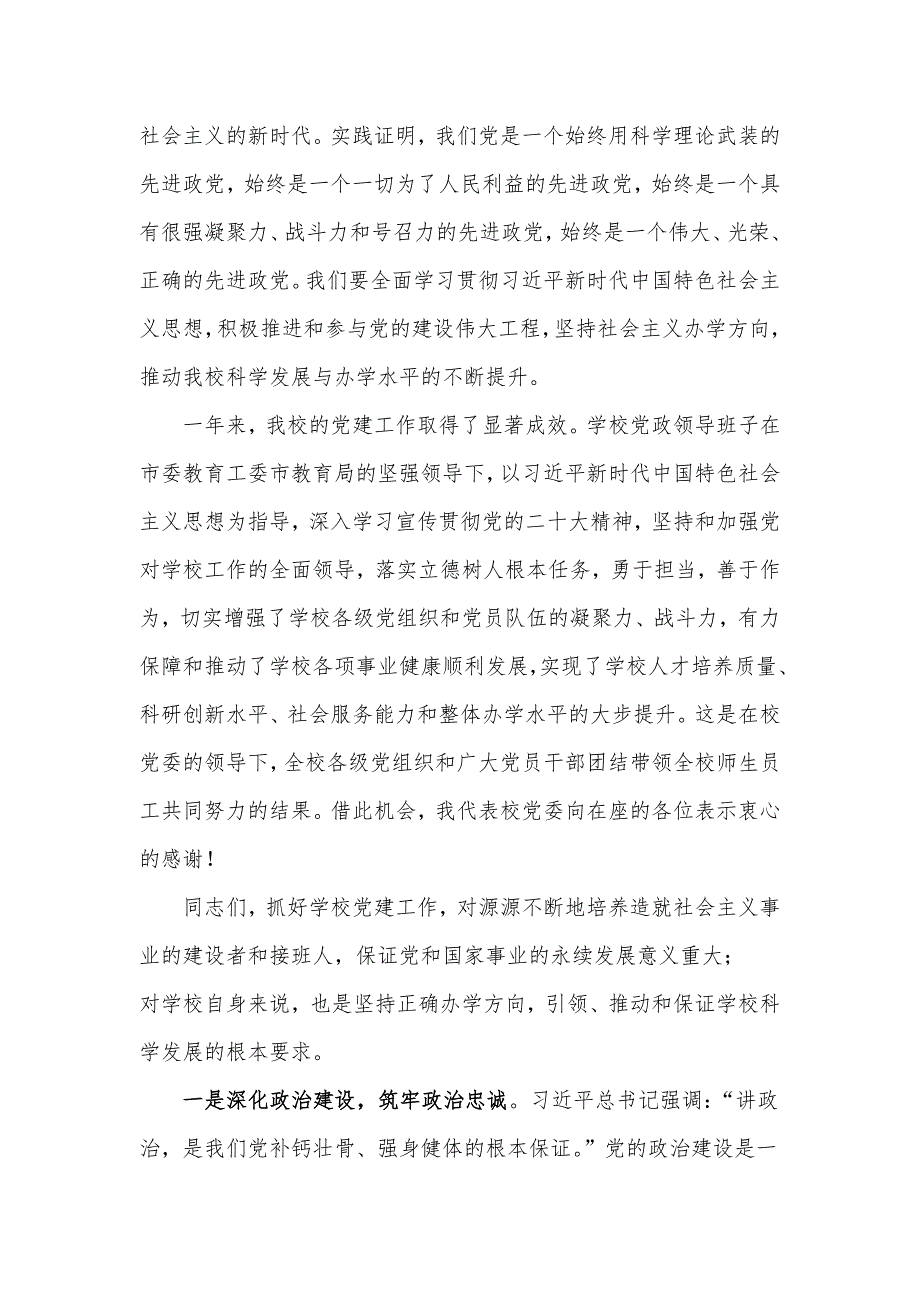 社会主义的新时代。实践证明，我们党是一个始终用科学理论武装的
先进政党，始终是一个一切为了人民利益的先进政党，始终是一个具
有很强凝聚力、战斗力和号召力的先进政党，始终是一个伟大、光荣、
正确的先进政党。我们要全面学习贯彻习近平新时代中国特色社会主
义思想，积极推进和参与党的建设伟大工程，坚持社会主义办学方向，
推动我校科学发展与办学水平的不断提升。
一年来，我校的党建工作取得了显著成效。学校党政领导班子在
市委教育工委市教育局的坚强领导下，以习近平新时代中国特色社会
主义思想为指导，深入学习宣传贯彻党的二十大精神，坚持和加强党
对学校工作的全面领导，落实立德树人根本任务，勇于担当，善于作
为，切实增强了学校各级党组织和党员队伍的凝聚力、战斗力，有力
保障和推动了学校各项事业健康顺利发展，实现了学校人才培养质量、
科研创新水平、社会服务能力和整体办学水平的大步提升。这是在校
党委的领导下，全校各级党组织和广大党员干部团结带领全校师生员
工共同努力的结果。借此机会，我代表校党委向在座的各位表示衷心
的感谢！
同志们，抓好学校党建工作，对源源不断地培养造就社会主义事
业的建设者和接班人，保证党和国家事业的永续发展意义重大；
对学校自身来说，也是坚持正确办学方向，引领、推动和保证学校科
学发展的根本要求。
一是深化政治建设，筑牢政治忠诚。习近平总书记强调：“讲政
治，是我们党补钙壮骨、强身健体的根本保证。”党的政治建设是一